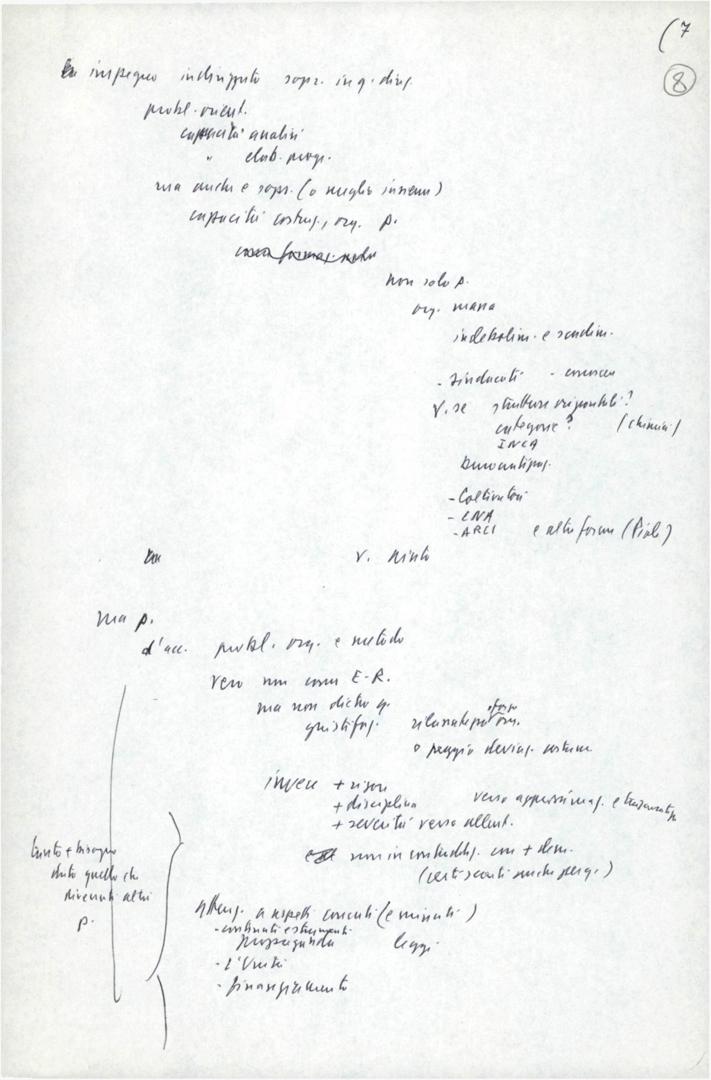 (7
8
impegno indirizzato sopr. in q. direz.
probl. orient.
capacità analisi
" elab. progr.
ma anche e sopr. (o meglio insieme)
capacità costruz., org. p.
non solo p.
org. massa
indebolim. e scadim.
- Sindacati -
V. se strutture orizzontali?
categorie? (chimici)
INCA
Burocratizzaz.
- Coltivatori
- CNA
- ARCI e altre forme (Pioli)
V.
ma p.
d'acc. probl. org. e metodo
vero non come E-R.
ma non dietro q.
giustificaz. rilassatezza sforzo org.
o peggio deviaz. costume
invece + rigore
+ disciplina verso approssimaz. e
+ severità verso allent.
non in contraddiz. con + dem.
(certi sconti anche per q.)
tanto + bisogno
dato quello che
divenuti altri
p.
attenz. a aspetti concreti (e minuti)
- contenuti e strumenti
propaganda leggi
- L'Unità
- finanziamento